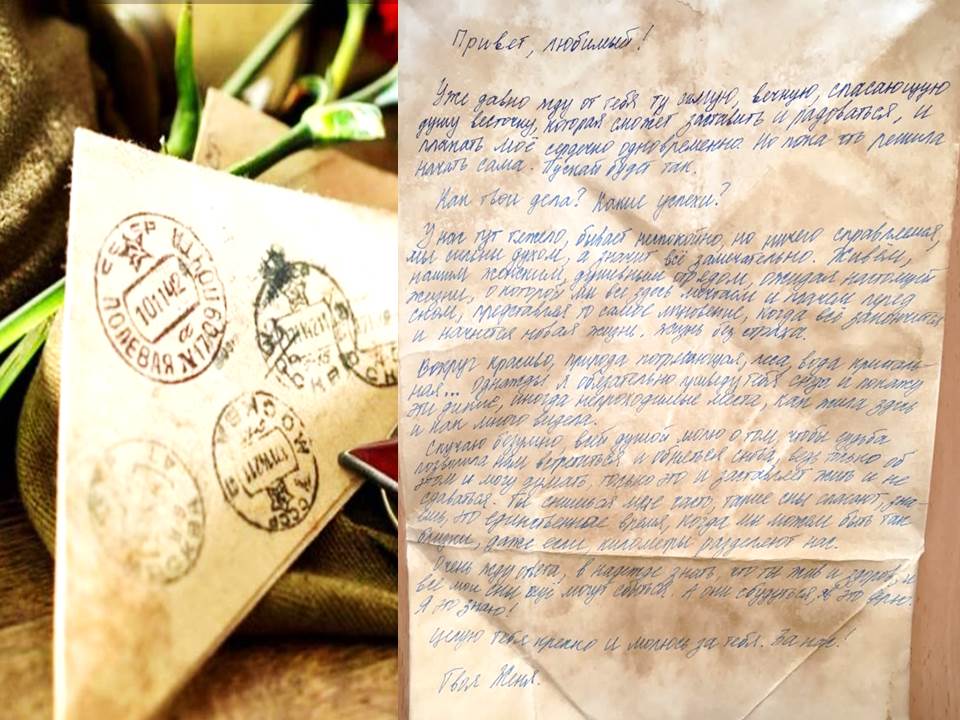 СССР
ПОЛЕВАЯ №1709
10 1 42
МОСКВА
СССР
Привет, любимый!
Уже давно жду от тебя ту самую, вечную, спасающую
душу весточку, которая сможет заставить и радоваться, и
плакать моё сердечко одновременно. Но пока что решила
начать сама. Пускай будет так.
Как твои дела? Какие успехи?
У нас тут тяжело, бывает неспокойно, но ничего справляемся,
мы сильны духом, а значит всё замечательно. Живём,
нашим женским, душевным отрядом, ожидая настоящей
жизни, о которой мы все здесь мечтаем и плачем перед
сном, представляя то самое мгновение, когда всё закончится
и начнется новая жизнь. Жизнь без страха.
Вокруг красиво, природа потрясающая, леса, вода кристаль-
ная... Однажды я обязательно приведу тебя сюда и покажу
эти дикие, иногда непроходимые места, как жила здесь
и как много видела.
Скучаю безумно, всей душой молю о том, чтобы судьба
позволила нам встретиться и обняться снова, ведь только об
этом и могу думать, только это и заставляет жить и не
сдаваться. Ты снишься мне часто, такие сны спасают, зна-
ешь, это единственное время, когда мы можем быть так
близки, даже если километры разделяют нас.
Очень жду ответа, в надежде знать, что ты жив и здоров,
все мои сны еще могут сбыться. А они сбудутся,
Я это знаю!
Целую тебя крепко и молюсь за тебя. За нас!
Твоя Женя.